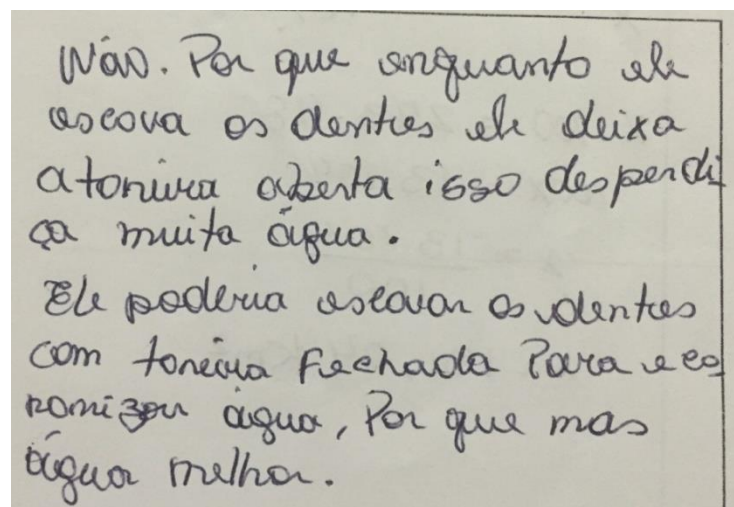 Não. Por que enquanto ele
escova os dentes ele deixa
a toneira aberta isso desperdi
ça muita água.
Ele poderia escovar os dentes
com toneira Fechada Para eco
nomizar água, Por que mas
água melhor.